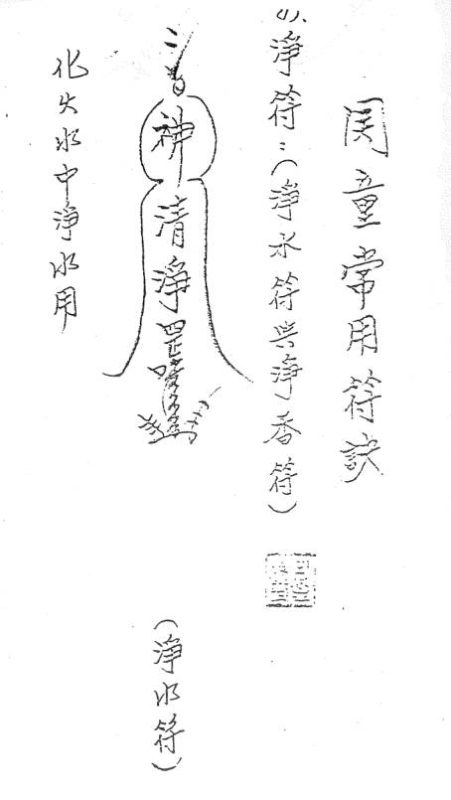 関童常用符訣
(1)、淨符：(淨水符與淨香符)
神清淨罡
(淨水符)
化火水中淨水用